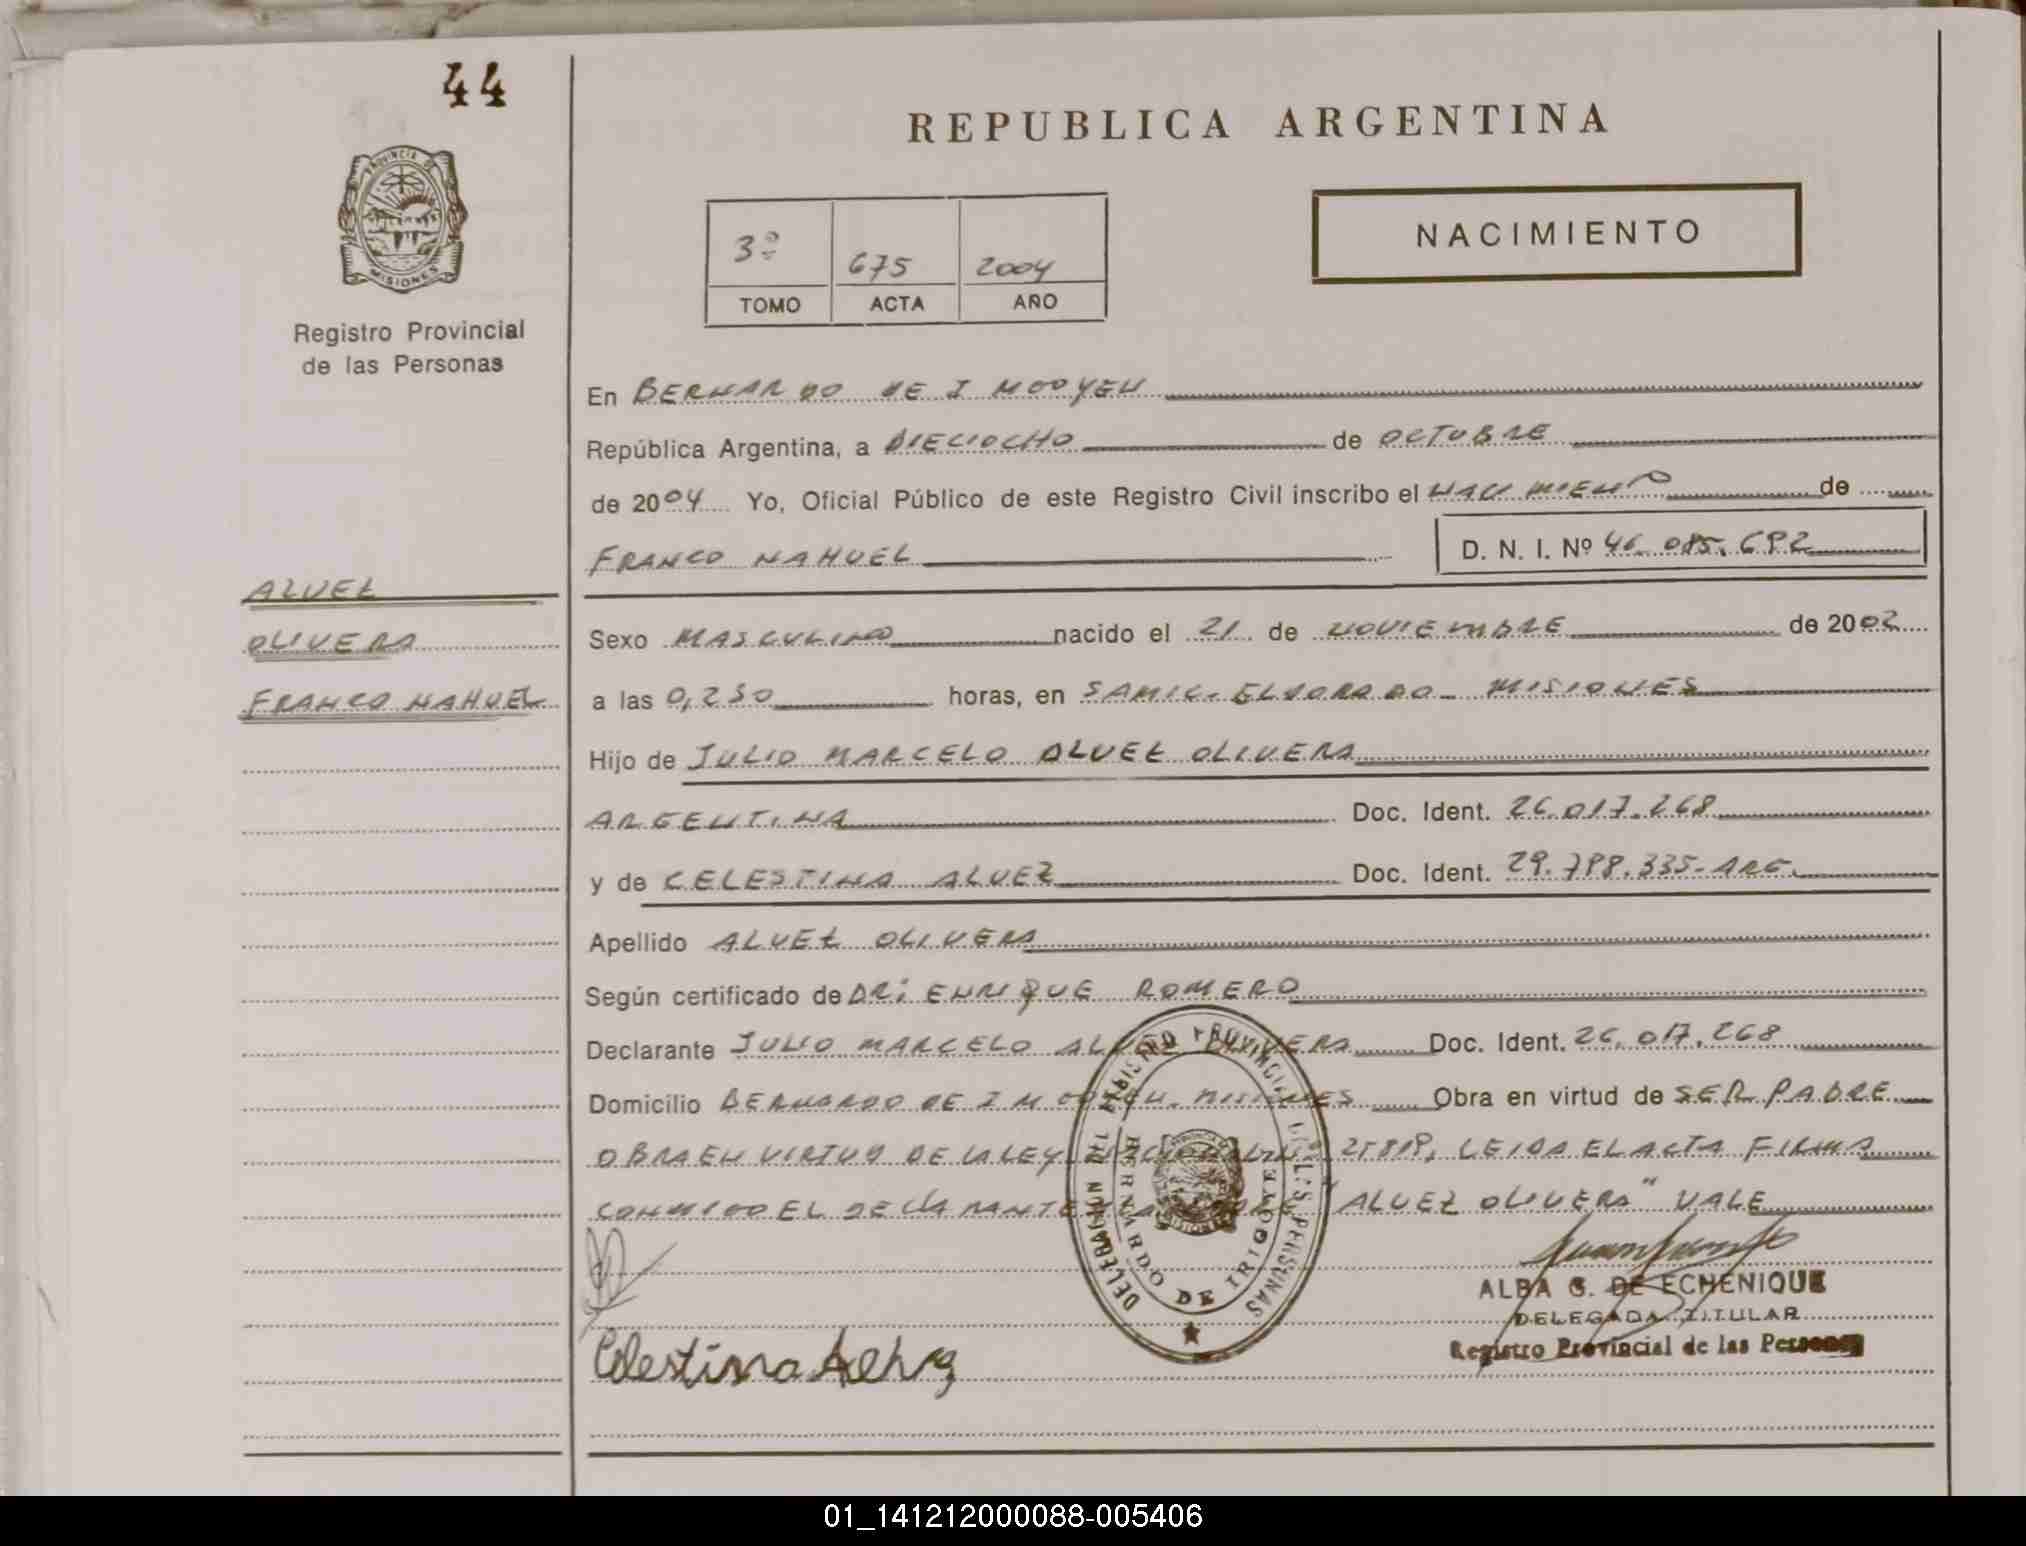 44
PROVINCIA DE
MISIONES
Registro Provincial
de las Personas
ALVEZ
OLIVERA
FRANCO NAHUEL
REPUBLICA ARGENTINA
3º 675 2004
TOMO ACTA AÑO
NACIMIENTO
En BERNARDO DE IRIGOYEN
República Argentina, a DIECIOCHO de OCTUBRE
de 2004 Yo, Oficial Público de este Registro Civil inscribo el NACIMIENTO de
FRANCO NAHUEL D. N. I. Nº 46.085.692
Sexo MASCULINO nacido el 21 de NOVIEMBRE de 2002
a las 0,230 horas, en SAMIC. ELDORADO - MISIONES
Hijo de JULIO MARCELO ALVEZ OLIVERA
ARGENTINA Doc. Ident. 26.017.268
y de CELESTINA ALVEZ Doc. Ident. 29.798.335-ARG.
Apellido ALVEZ OLIVERA
Según certificado de DR: ENRIQUE ROMERO
Declarante JULIO MARCELO ALVEZ OLIVERA Doc. Ident. 26.017.268
Domicilio BERNARDO DE IRIGOYEN. MISIONES Obra en virtud de SER PADRE
OBRA EN VIRTUD DE LA LEY NACIONAL Nº 25819, LEIDA EL ACTA FIRMA
CONMIGO EL DECLARANTE "ALVEZ OLIVERA" VALE
DELEGACION DEL REGISTRO PROVINCIAL DE LAS PERSONAS
BERNARDO DE IRIGOYEN
ALBA G. DE ECHENIQUE
DELEGADA TITULAR
Registro Provincial de las Personas
Celestina Alvez
01_141212000088-005406